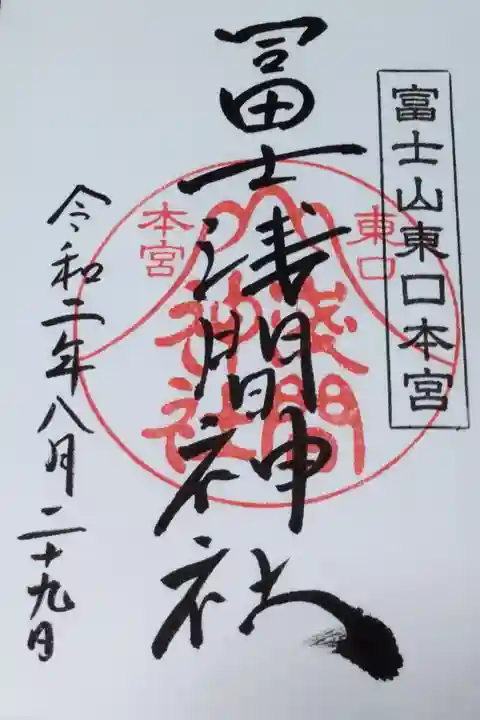 富士山東口本宮
冨士浅間神社
東口
本宮
浅間
神社
令和二年八月二十九日